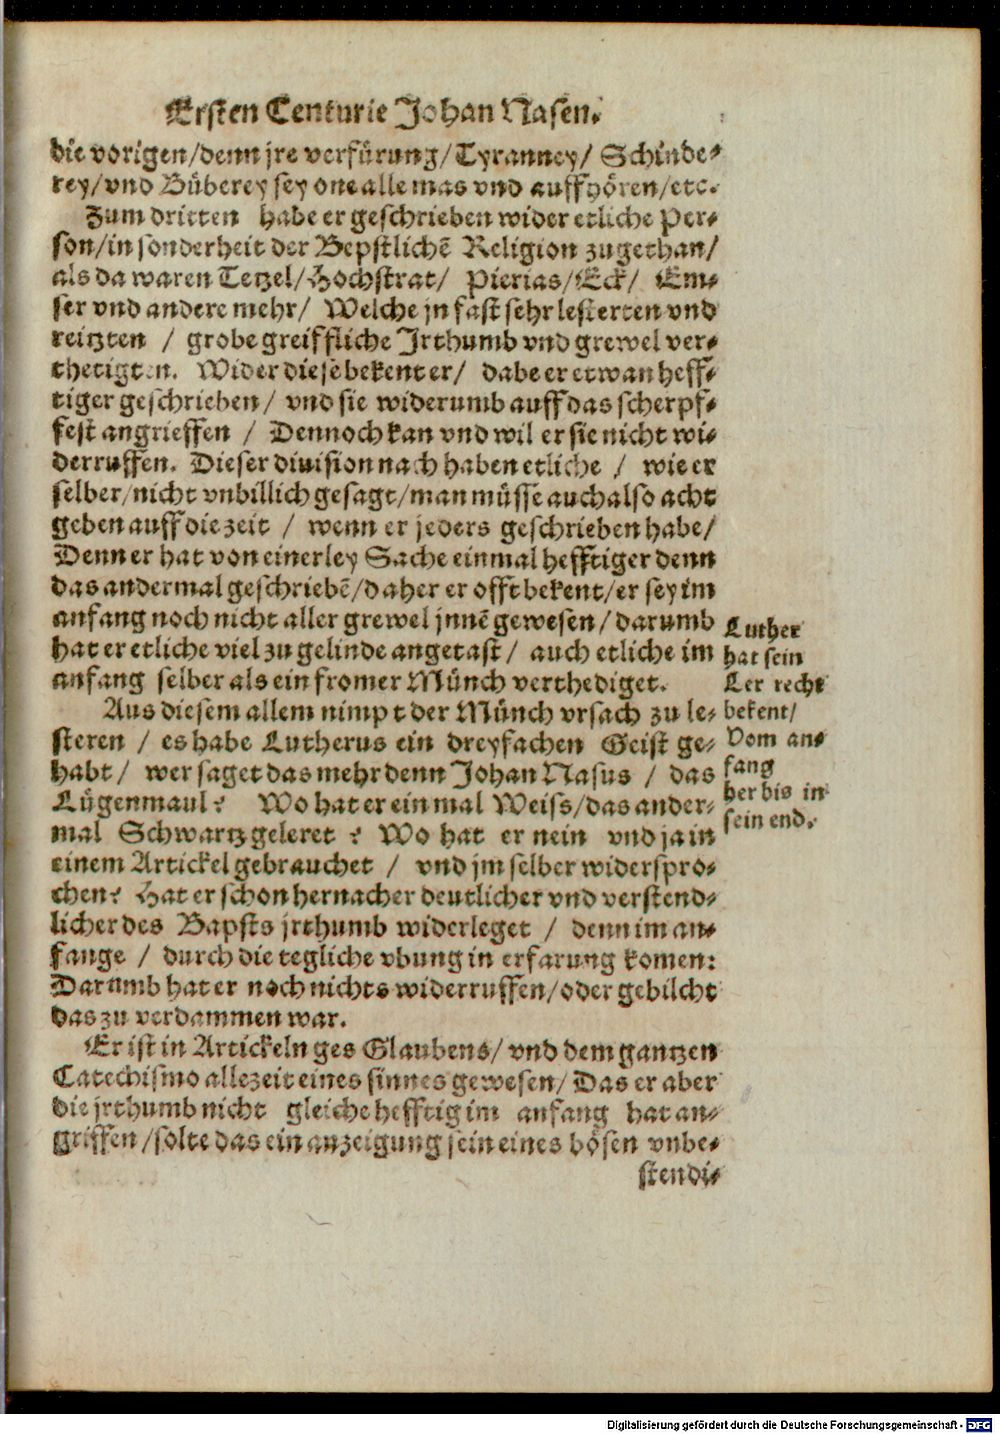 Ersten Centurie Johan Nasen.
die vorigen/denn jre verfürung/Tyranney/ Schinde-
rey/vnd Büberey sey one alle mas vnd auffhören/etc.
Zum dritten habe er geschrieben wider etliche Per-
son/in sonderheit der Bepstlichẽ Religion zugethan/
als da waren Tetzel/Hochstrat/ Pierias/Eck/ Em-
ser vnd andere mehr/ Welche jn fast sehr lesterten vnd
reitzten / grobe greiffliche Jrthumb vnd grewel ver-
thetigten. Wider diese bekent er/ dabe er etwan heff-
tiger geschrieben/ vnd sie widerumb auff das scherpf-
fest angrieffen / Dennoch kan vnd wil er sie nicht wi-
derruffen. Dieser diuision nach haben etliche / wie er
selber/nicht vnbillich gesagt/man müsse auch also acht
geben auff die zeit / wenn er jeders geschrieben habe/
Denn er hat von einerley Sache einmal hefftiger denn
das andermal geschriebẽ/daher er offt bekent/er sey im
anfang noch nicht aller grewel jnnẽ gewesen/darumb
hat er etliche viel zu gelinde angetast/ auch etliche im
anfang selber als ein fromer Münch verthediget.
Aus diesem allem nimpt der Münch vrsach zu le-
steren / es habe Lutherus ein dreyfachen Geist ge-
habt/ wer saget das mehr denn Johan Nasus / das
Lügenmaul? Wo hat er einmal Weiss/das ander-
mal Schwartz geleret ? Wo hat er nein vnd ja in
einem Artickel gebrauchet / vnd jm selber widerspro-
chen? Hat er schon hernacher deutlicher vnd verstend-
licher des Bapsts jrthumb widerleget / denn im an-
fange / durch die tegliche vbung in erfarung komen:
Darumb hat er noch nichts widerruffen/oder gebilcht
das zu verdammen war.
Er ist in Artickeln ges Glaubens/ vnd dem gantzen
Catechismo allezeit eines sinnes gewesen/ Das er aber
die jrthumb nicht gleiche hefftig im anfang hat an-
griffen/solte das ein anzeigung sein eines bösen vnbe-
stendi-
Luther
hat sein
Ler recht
bekent/
Vom an-
fang
her bis in
sein end.
Digitalisierung gefördert durch die Deutsche Forschungsgemeinschaft - DFG